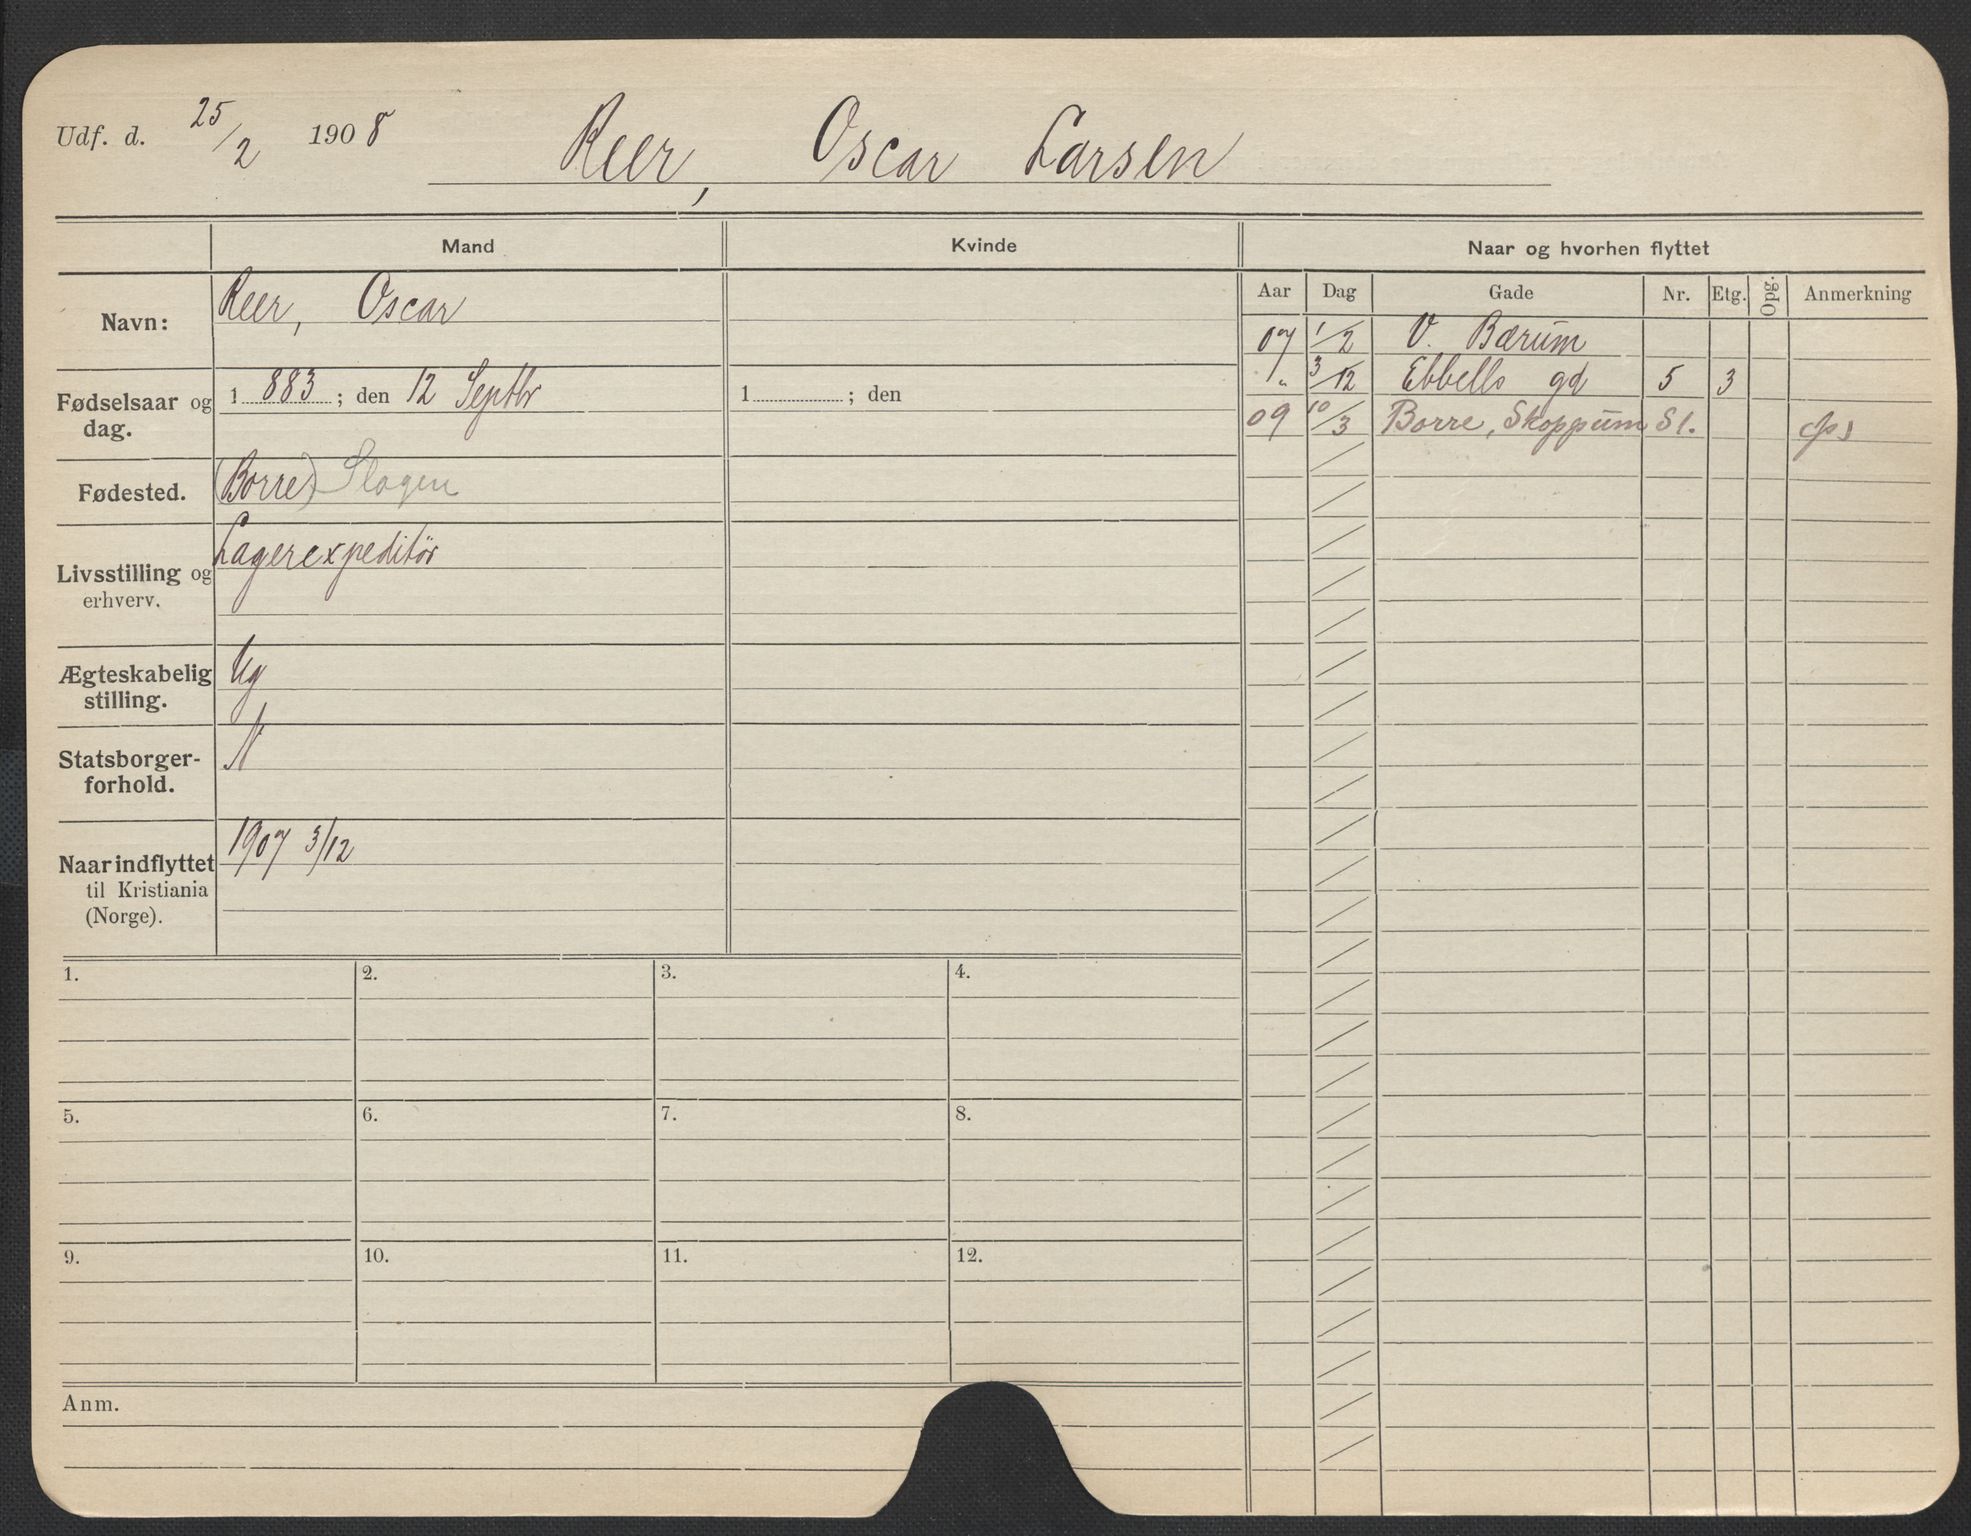 Udf. d. 25/2 1908 Reer, Oscar Larsen
Mand Kvinde Naar og hvorhen flyttet
Navn: Reer, Oscar
Fødselsaar og dag. 1883; den 12 Septbr 1 ; den
Fødested. (Borre) Slagen
Livsstilling og erhverv. Lagerexpeditør
Ægteskabelig stilling. Ug
Statsborgerforhold. N
Naar indflyttet til Kristiania (Norge). 1907 3/12
Aar Dag Gade Nr. Etg. Opg. Anmerkning
07 1/2 V. Bærum
" 3/12 Ebbells gd 5 3
09 10/3 Borre, Skoppum St.
1. 2. 3. 4.
5. 6. 7. 8.
9. 10. 11. 12.
Anm.